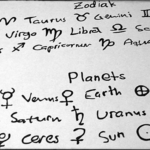 Zodiak
♈ Taurus ♉ Gemini ♊
Virgo ♍ Libra ♎ Sc
♐ Capricorner ♑ Aqua
Planets
☿ Venus ♀ Earth ⊕
Saturn ♄ Uranus
Ceres ⚳ Sun ☉